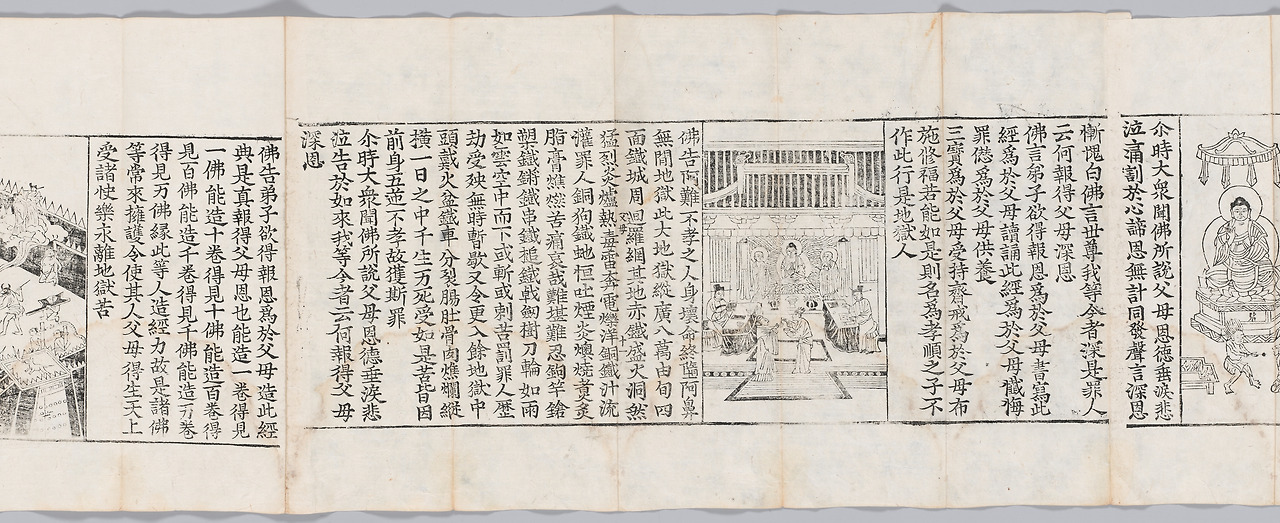 尒時大衆聞佛所說父母恩德垂淚悲
泣痛割於心諦思無計同發聲言深思
慚愧白佛言世尊我等今者深是罪人
云何報得父母深恩
佛言弟子欲得報恩爲於父母書寫此
經爲於父母讀誦此經爲於父母懺悔
罪愆爲於父母供養
三寶爲於父母受持齋戒爲於父母布
施修福若能如是則名爲孝順之子不
作此行是地獄人
佛告阿難不孝之人身壞命終墮阿鼻
無間地獄此大地獄縱廣八萬由旬四
面鐵城周迴羅網其地赤鐵盛火洞然
猛烈炎爐熱毒雷奔電爍洋銅鐵汁流
灌罪人銅狗鐵蛇恒吐煙炎燠燒煑炙
脂膏燋燃苦痛哀哉難堪難忍鉤竿鎗
槊鐵鏘鐵串鐵搥鐵戟釰樹刀輪如雨
如雲空中而下或斬或刺苦罰罪人歷
劫受殃無時暫歇又令更入餘地獄中
頭戴火盆鐵車分裂腸肚骨肉燋爛縱
橫一日之中千生万死受如是苦皆因
前身五逆不孝故獲斯罪
尒時大衆聞佛所說父母恩德垂淚悲
泣告於如來我等今者云何報得父母
深恩
佛告弟子欲得報恩爲於父母造此經
典是真報得父母恩也能造一卷得見
一佛能造十卷得見十佛能造百卷得
見百佛能造千卷得見千佛能造万卷
得見万佛緣此等人造經力故是諸佛
等常來擁護令使其人父母得生天上
受諸快樂永離地獄苦